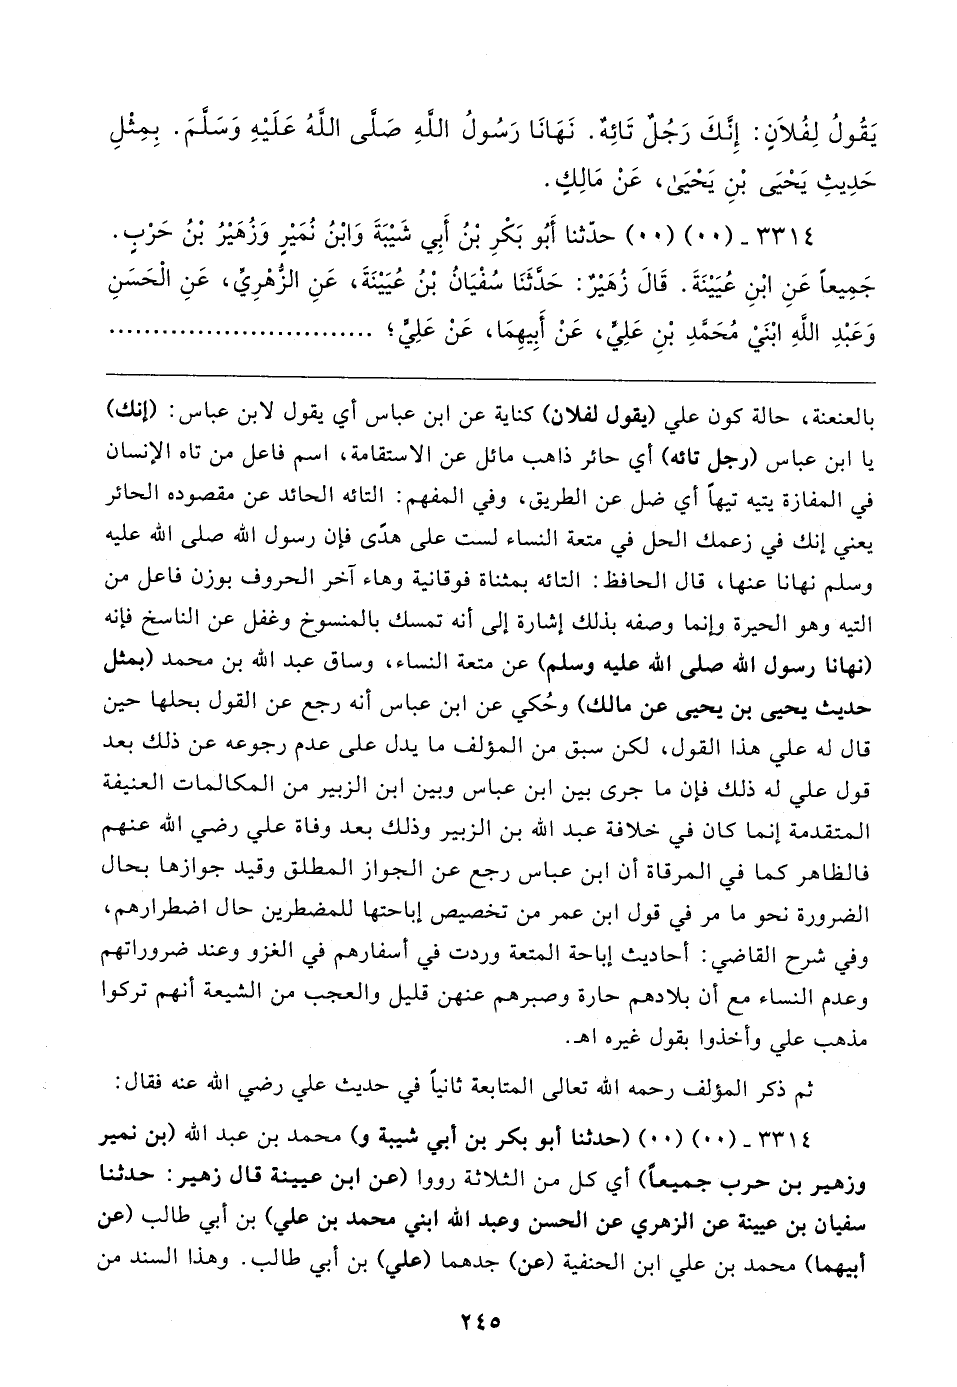 يَقُولُ لِفُلاَنٍ: إِنَّكَ رَجُلٌ تَائِهٌ. نَهَانَا رَسُولُ اللَّهِ صَلَّى اللَّهُ عَلَيْهِ وَسَلَّمَ. بِمِثْلِ
حَدِيثِ يَحْيَى بْنِ يَحْيَىٰ، عَنْ مَالِكٍ.
٣٣١٤ ـ (٠٠) (٠٠) حدّثنا أَبُو بَكْرِ بْنُ أَبِي شَيْبَةَ وَابْنُ نُمَيْرٍ وَزُهَيْرُ بْنُ حَرْبٍ.
جَمِيعاً عَنِ ابْنِ عُيَيْنَةَ. قَالَ زُهَيْرٌ: حَدَّثَنَا سُفْيَانُ بْنُ عُيَيْنَةَ، عَنِ الزُّهْرِيِّ، عَنِ الْحَسَنِ
وَعَبْدِ اللَّهِ ابْنَيْ مُحَمَّدِ بْنِ عَلِيٍّ، عَنْ أَبِيهِمَا، عَنْ عَلِيٍّ؛ ............................
بالعنعنة، حالة كون علي (يقول لفلان) كناية عن ابن عباس أي يقول لابن عباس: (إنك)
يا ابن عباس (رجل تائه) أي حائر ذاهب مائل عن الاستقامة، اسم فاعل من تاه الإنسان
في المفازة يتيه تيهاً أي ضل عن الطريق، وفي المفهم: التائه الحائد عن مقصوده الحائر
يعني إنك في زعمك الحل في متعة النساء لست على هدًى فإن رسول الله صلى الله عليه
وسلم نهانا عنها، قال الحافظ: التائه بمثناة فوقانية وهاء آخر الحروف بوزن فاعل من
التيه وهو الحيرة وإنما وصفه بذلك إشارة إلى أنه تمسك بالمنسوخ وغفل عن الناسخ فإنه
(نهانا رسول الله صلى الله عليه وسلم) عن متعة النساء، وساق عبد الله بن محمد (بمثل
حديث يحيى بن يحيى عن مالك) وحُكي عن ابن عباس أنه رجع عن القول بحلها حين
قال له علي هذا القول، لكن سبق من المؤلف ما يدل على عدم رجوعه عن ذلك بعد
قول علي له ذلك فإن ما جرى بين ابن عباس وبين ابن الزبير من المكالمات العنيفة
المتقدمة إنما كان في خلافة عبد الله بن الزبير وذلك بعد وفاة علي رضي الله عنهم
فالظاهر كما في المرقاة أن ابن عباس رجع عن الجواز المطلق وقيد جوازها بحال
الضرورة نحو ما مر في قول ابن عمر من تخصيص إباحتها للمضطرين حال اضطرارهم،
وفي شرح القاضي: أحاديث إباحة المتعة وردت في أسفارهم في الغزو وعند ضروراتهم
وعدم النساء مع أن بلادهم حارة وصبرهم عنهن قليل والعجب من الشيعة أنهم تركوا
مذهب علي وأخذوا بقول غيره اهـ.
ثم ذكر المؤلف رحمه الله تعالى المتابعة ثانياً في حديث علي رضي الله عنه فقال:
٣٣١٤ ـ (٠٠) (٠٠) (حدثنا أبو بكر بن أبي شيبة و) محمد بن عبد الله (بن نمير
وزهير بن حرب جميعاً) أي كل من الثلاثة رووا (عن ابن عيينة قال زهير: حدثنا
سفيان بن عيينة عن الزهري عن الحسن وعبد الله ابني محمد بن علي) بن أبي طالب (عن
أبيهما) محمد بن علي ابن الحنفية (عن) جدهما (علي) بن أبي طالب. وهذا السند من
٢٤٥